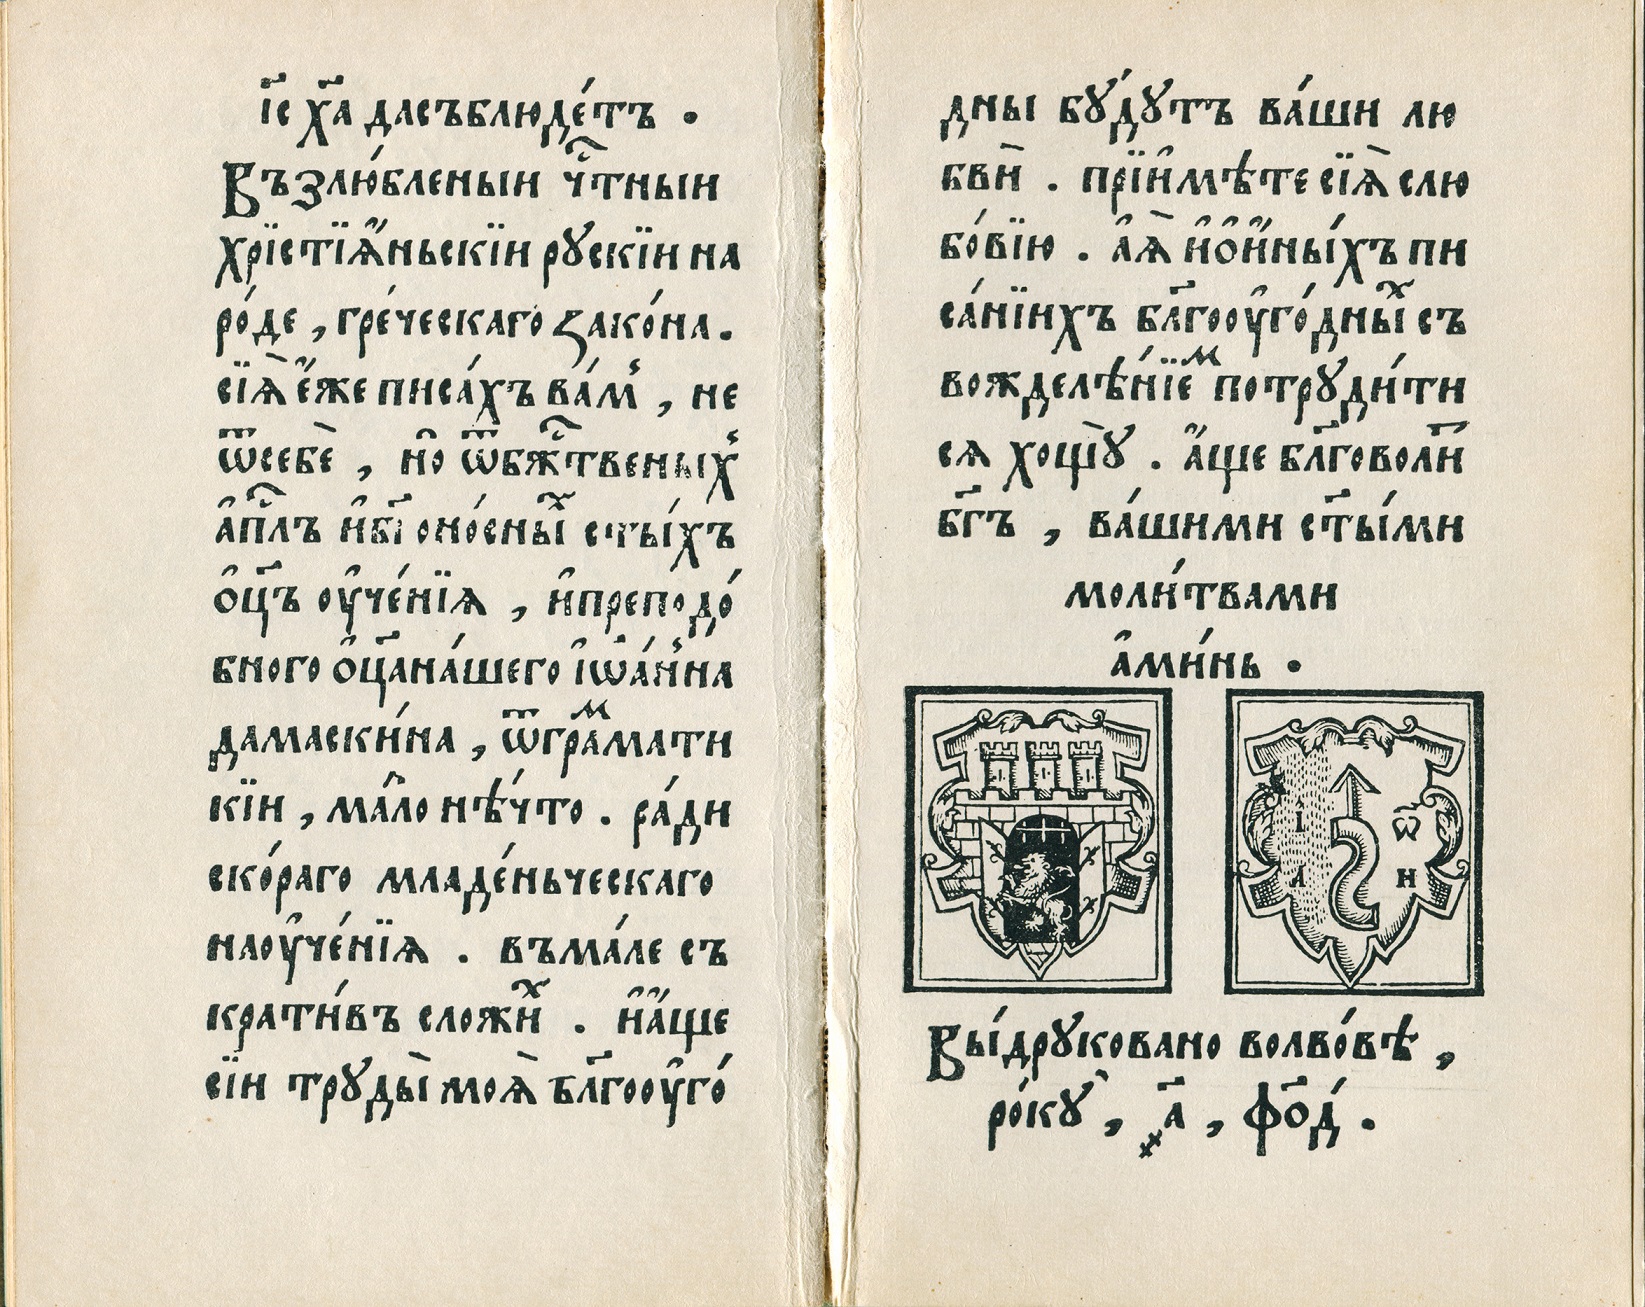 і҃с х҃а дасъблюде́тъ .
Възлю́бленыи ч҃тныи
хрїстїѧ́ньскїи рꙋскїи на
ро́де , гре́ческаго зако́на .
сїѧ̀ є҆́же писа́хъ ва́м , не
ѿсебѐ , но̑ ѿбж҃твеных
а҆пⷭ҇лъ и҆б҃гоно́сныⷯ с҃ты́хъ
о҆ц҃ъ оу҆че́нїѧ , и҆преподо́
бного о҆ц҃ана́шего і҆ѡа́нна
дамаски́на , ѿгра́маⷨти
кїи , ма́ло нѣ́что . ра́ди
ско́раго младе́ньческаго
наоу҆че́нїѧ . въма́ле съ
крати́въ сложиⷯ . и҆а҆́ще
сїи трꙋды̀ моѧ̀ бл҃гооу҆го́
дны бꙋ́дꙋтъ ва́ши лю
бвѝ . прїи҆мѣ́те сїѧ̀ слю
бо́вїю . а҆ѧ̀ и҆ѡ҆и҆ны́хъ пи
са́нїихъ бл҃гооу҆го́дныⷯ съ
вожделѣ́нїеⷨ потрꙋди́ти
сѧ хощꙋ̀ . а҆́ще бл҃говоли́т
б҃гъ , ва́шими с҃ты́ми
моли́твами
а҆ми́нь .
І Ѿ
Л Н
Вы́дрꙋковано волво́вѣ ,
ро́кꙋ , ҂а҃ , фо҃д .